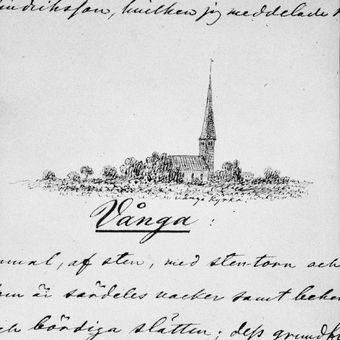 indriksson, hvilken jag meddelade
Vånga kyrka.
Vånga:
mal, af sten, med sten-torn och
är särdeles vacker samt beha
och bördiga slätten; dess grundf